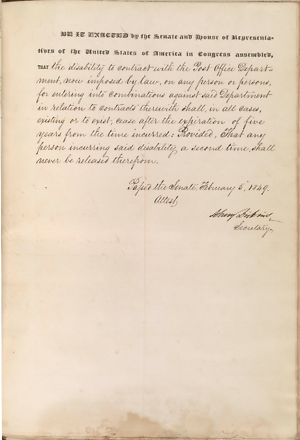 BE IT ENACTED by the Senate and House of Representa-
tives of the United States of America in Congress assembled,
THAT the disability to contract with the Post Office Depart-
ment, now imposed by law, on any person or persons,
for entering into combinations against said Department
in relation to contracts therewith shall, in all cases,
existing or to exist, cease after the expiration of five
years from the time incurred: Provided, That any
person incurring said disability a second time, shall
never be released therefrom.
Passed the Senate, February 5, 1849.
Attest,
Secretary.